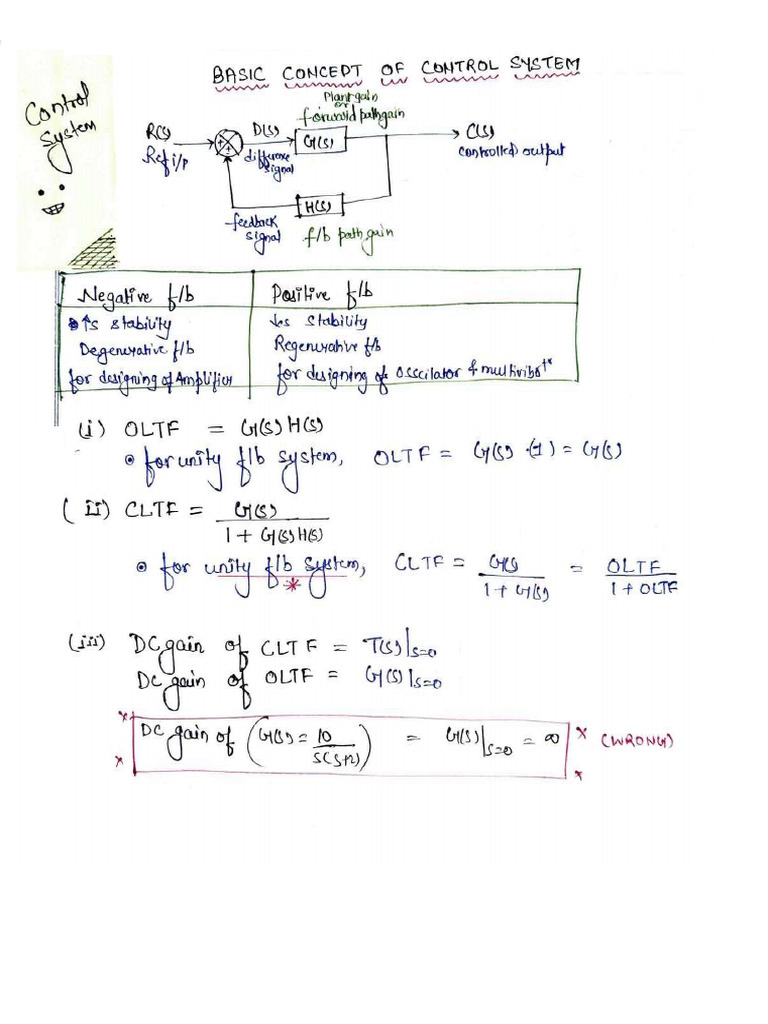 Control
System
BASIC CONCEPT OF CONTROL SYSTEM
Plant gain
or
forward path gain
R(s) D(s) G(s) C(s)
Ref i/p difference
signal
controlled output
H(s)
feedback
signal
f/b path gain
Negative f/b Positive f/b
↑s stability ↓es stability
Degenerative f/b Regenerative f/b
for designing of Amplifier for designing of Osscilator & multivibotrs
(i) OLTF = G(s) H(s)
for unity f/b system, OLTF = G(s) ·(1) = G(s)
(ii) CLTF = G(s) / 1 + G(s)H(s)
for unity f/b system, CLTF = G(s) / 1 + G(s) = OLTF / 1 + OLTF
*
(iii) DC gain of CLTF = T(s)|s=0
DC gain of OLTF = G(s)|s=0
DC gain of (G(s) = 10 / s(s+2)) = G(s)|s=0 = ∞ × (WRONG)